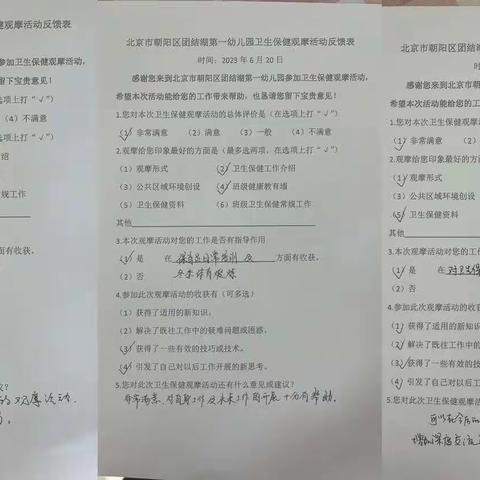 观摩活动反馈表
健观摩活动,
下宝贵意见!
选项上打“√”)
(4)不满意
选项上打“√”)
介绍
墙
常规工作
方面有收获。
北京市朝阳区团结湖第一幼儿园卫生保健观摩活动反馈表
时间:2023 年 6 月 20 日
感谢您来到北京市朝阳区团结湖第一幼儿园参加卫生保健观摩活动,
希望本次活动能给您的工作带来帮助,也恳请您留下宝贵意见!
1.您对本次卫生保健观摩活动的总体评价是(在选项上打“√”)
(1)非常满意 (2)满意 (3)一般 (4)不满意
2.观摩给您印象最好的方面是(最多选两项,在选项上打“√”)
(1)观摩形式 (2)卫生保健工作介绍
(3)公共区域环境创设 (4)班级健康教育墙
(5)卫生保健资料 (6)班级卫生保健常规工作
其他
3.本次观摩活动对您的工作是否有指导作用
(1)是 在 保育员日常培训 及 方面有收获。
(2)否
4.参加此次观摩活动的收获有(可多选)
(1)获得了适用的新知识。
(2)解决了既往工作中的疑难问题或困惑。
(3)获得了一些有效的技巧或技术。
(4)引发了自己对以后工作开展的新思考。
5.您对此次卫生保健观摩活动还有什么意见或建议?
非常满意,对自身工作及未来工作的开展十分有帮助。
北京市朝阳区团结湖第一幼
时间:
感谢您来到北京市朝阳区团结
希望本次活动能给您的工作带来
1.您对本次卫生保健观摩活动
(1)非常满意 (2)满意
2.观摩给您印象最好的方面是
(1)观摩形式
(3)公共区域环境创设
(5)卫生保健资料
其他
3.本次观摩活动对您的工作
(1)是 在
(2)否
4.参加此次观摩活动的收
(1)获得了适用的新知识
(2)解决了既往工作中的
(3)获得了一些有效的技
(4)引发了自己对以后工
5.您对此次卫生保健观摩
可以在今后的
增加深度交流